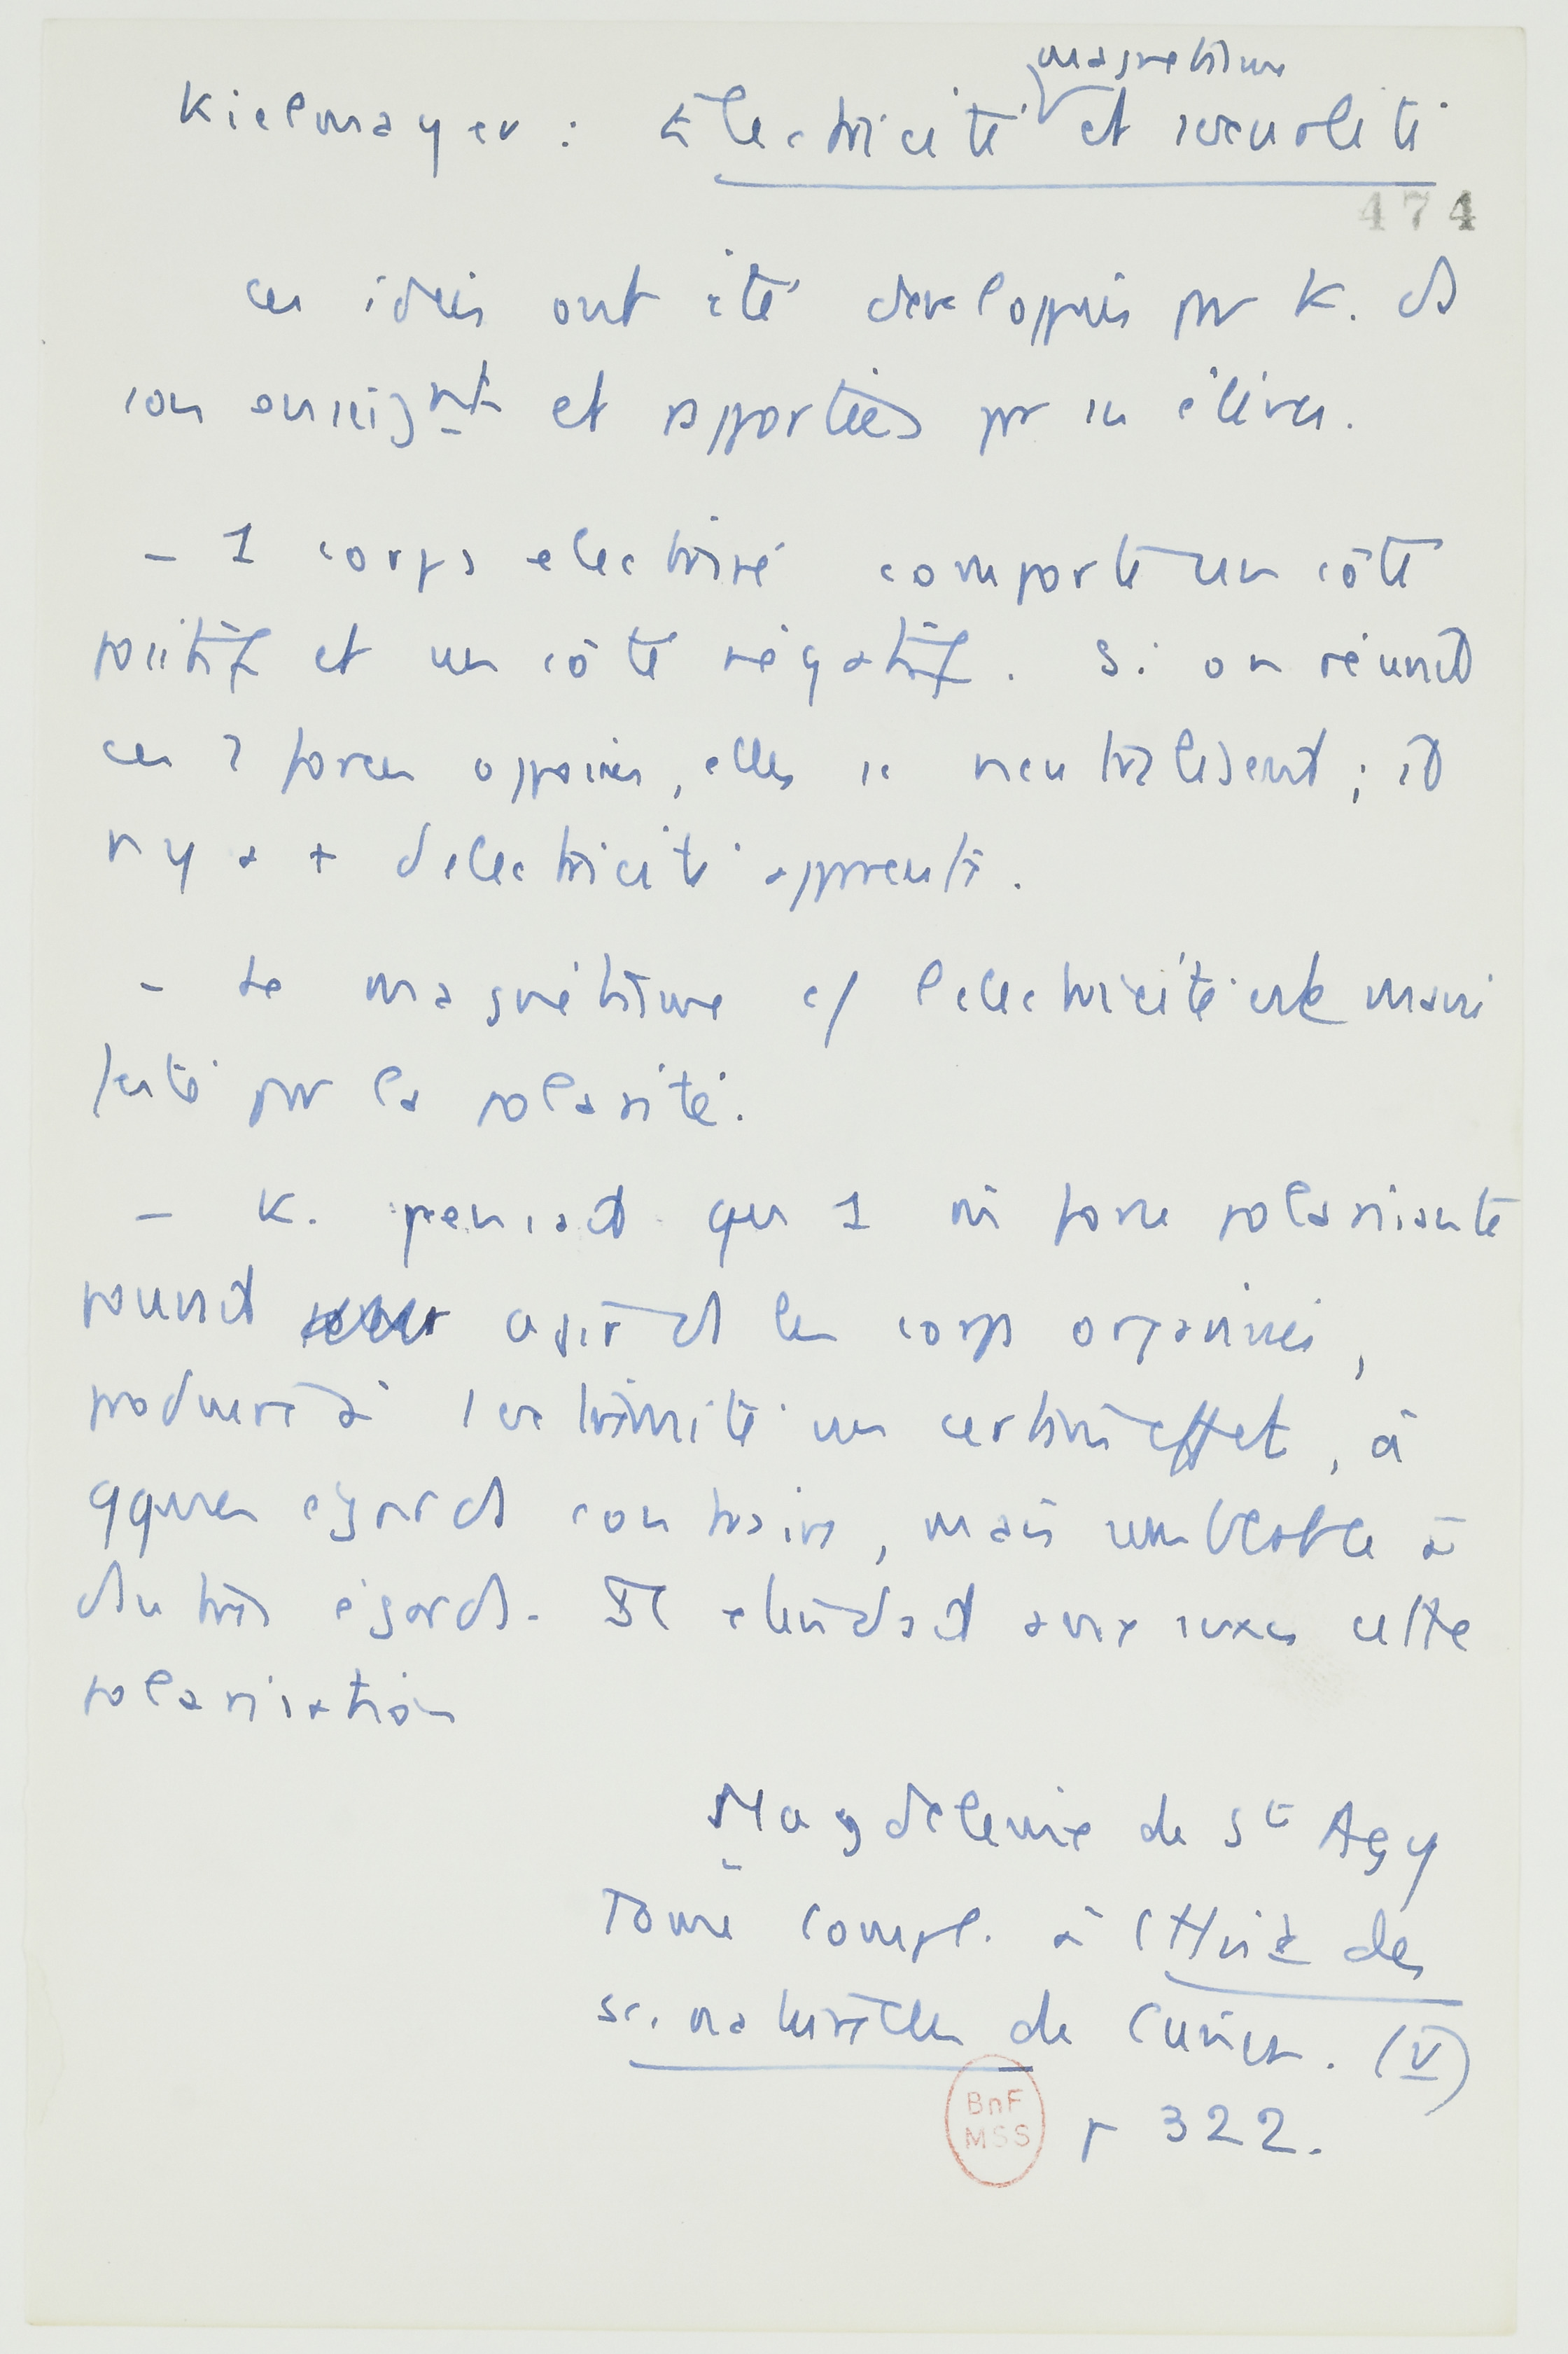 magnétisme
Kielmayer : Électricité et sexualité
474
ces idées ont été développées par K. ds
son enseignt et rapportées par ses élèves.
- 1 corps electrisé comporte un côté
positif et un côté négatif. Si on réunit
ces 2 forces opposées, elles se neutralisent ; il
n y a + d'électricité apparente.
- Le magnétisme c/ l'électricité est mani
festé par la polarité.
- K. pensait que 1 force polarisante
pouvait agir ds les corps organisés,
produire à 1 extrémité un certain effet, à
qques égards contraire, mais semblable à
d'autres égards. Il étendait aux sexes cette
polarisation
Magdeleine de St Agy
Tome compl. à l'Hist des
sc. naturelles de Cuvier. (V)
p 322.
BnF
MSS